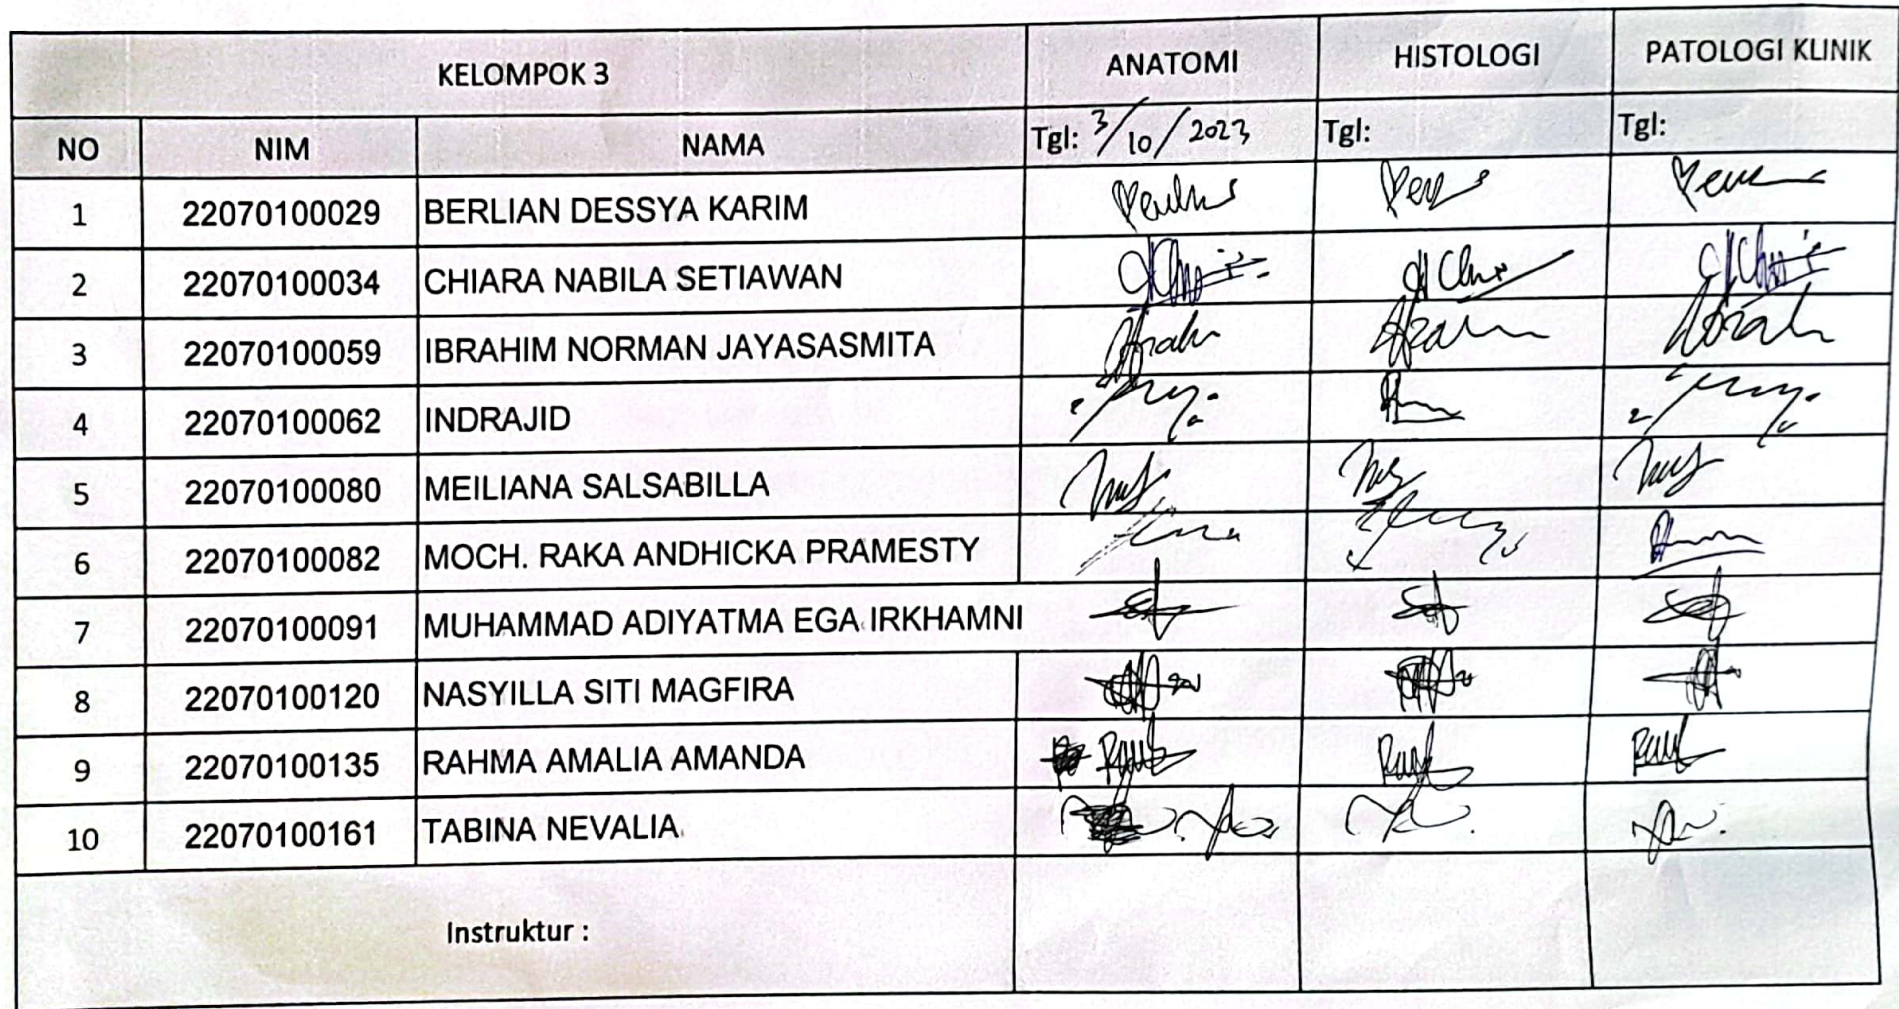 KELOMPOK 3 ANATOMI HISTOLOGI PATOLOGI KLINIK
NO NIM NAMA Tgl: 3/10/2023 Tgl: Tgl:
1 22070100029 BERLIAN DESSYA KARIM
2 22070100034 CHIARA NABILA SETIAWAN
3 22070100059 IBRAHIM NORMAN JAYASASMITA
4 22070100062 INDRAJID
5 22070100080 MEILIANA SALSABILLA
6 22070100082 MOCH. RAKA ANDHICKA PRAMESTY
7 22070100091 MUHAMMAD ADIYATMA EGA IRKHAMNI
8 22070100120 NASYILLA SITI MAGFIRA
9 22070100135 RAHMA AMALIA AMANDA
10 22070100161 TABINA NEVALIA
Instruktur :